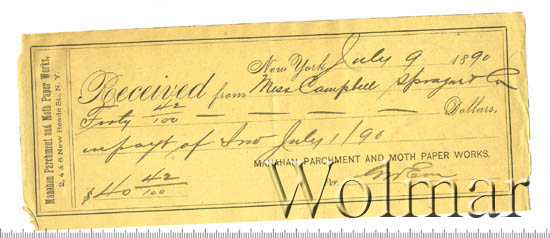 Manahan Parchment and Moth Paper Works,
2, 4 & 6 New Reade St., N. Y.
New York July 9 1890
Received from Mess Campbell Sprague & Co
Forty 42/100 Dollars,
in payt of Inv July 1/90
MANAHAN PARCHMENT AND MOTH PAPER WORKS,
$40 42/100 Per
Wolmar